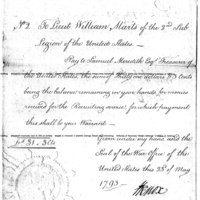 No 3. To Lieut William Marts of the 2nd Sub
Legion of the United States
Pay to Samuel Meredith Esqr Treasurer of
the United States, the sum of dollars & Cents
being the balance remaining in your hands for monies
received for the Recruiting service: for which payment
this shall be your Warrant.
Given under my hand and the
Seal of the War Office of the
United States this 28th of May
1793
HKnox